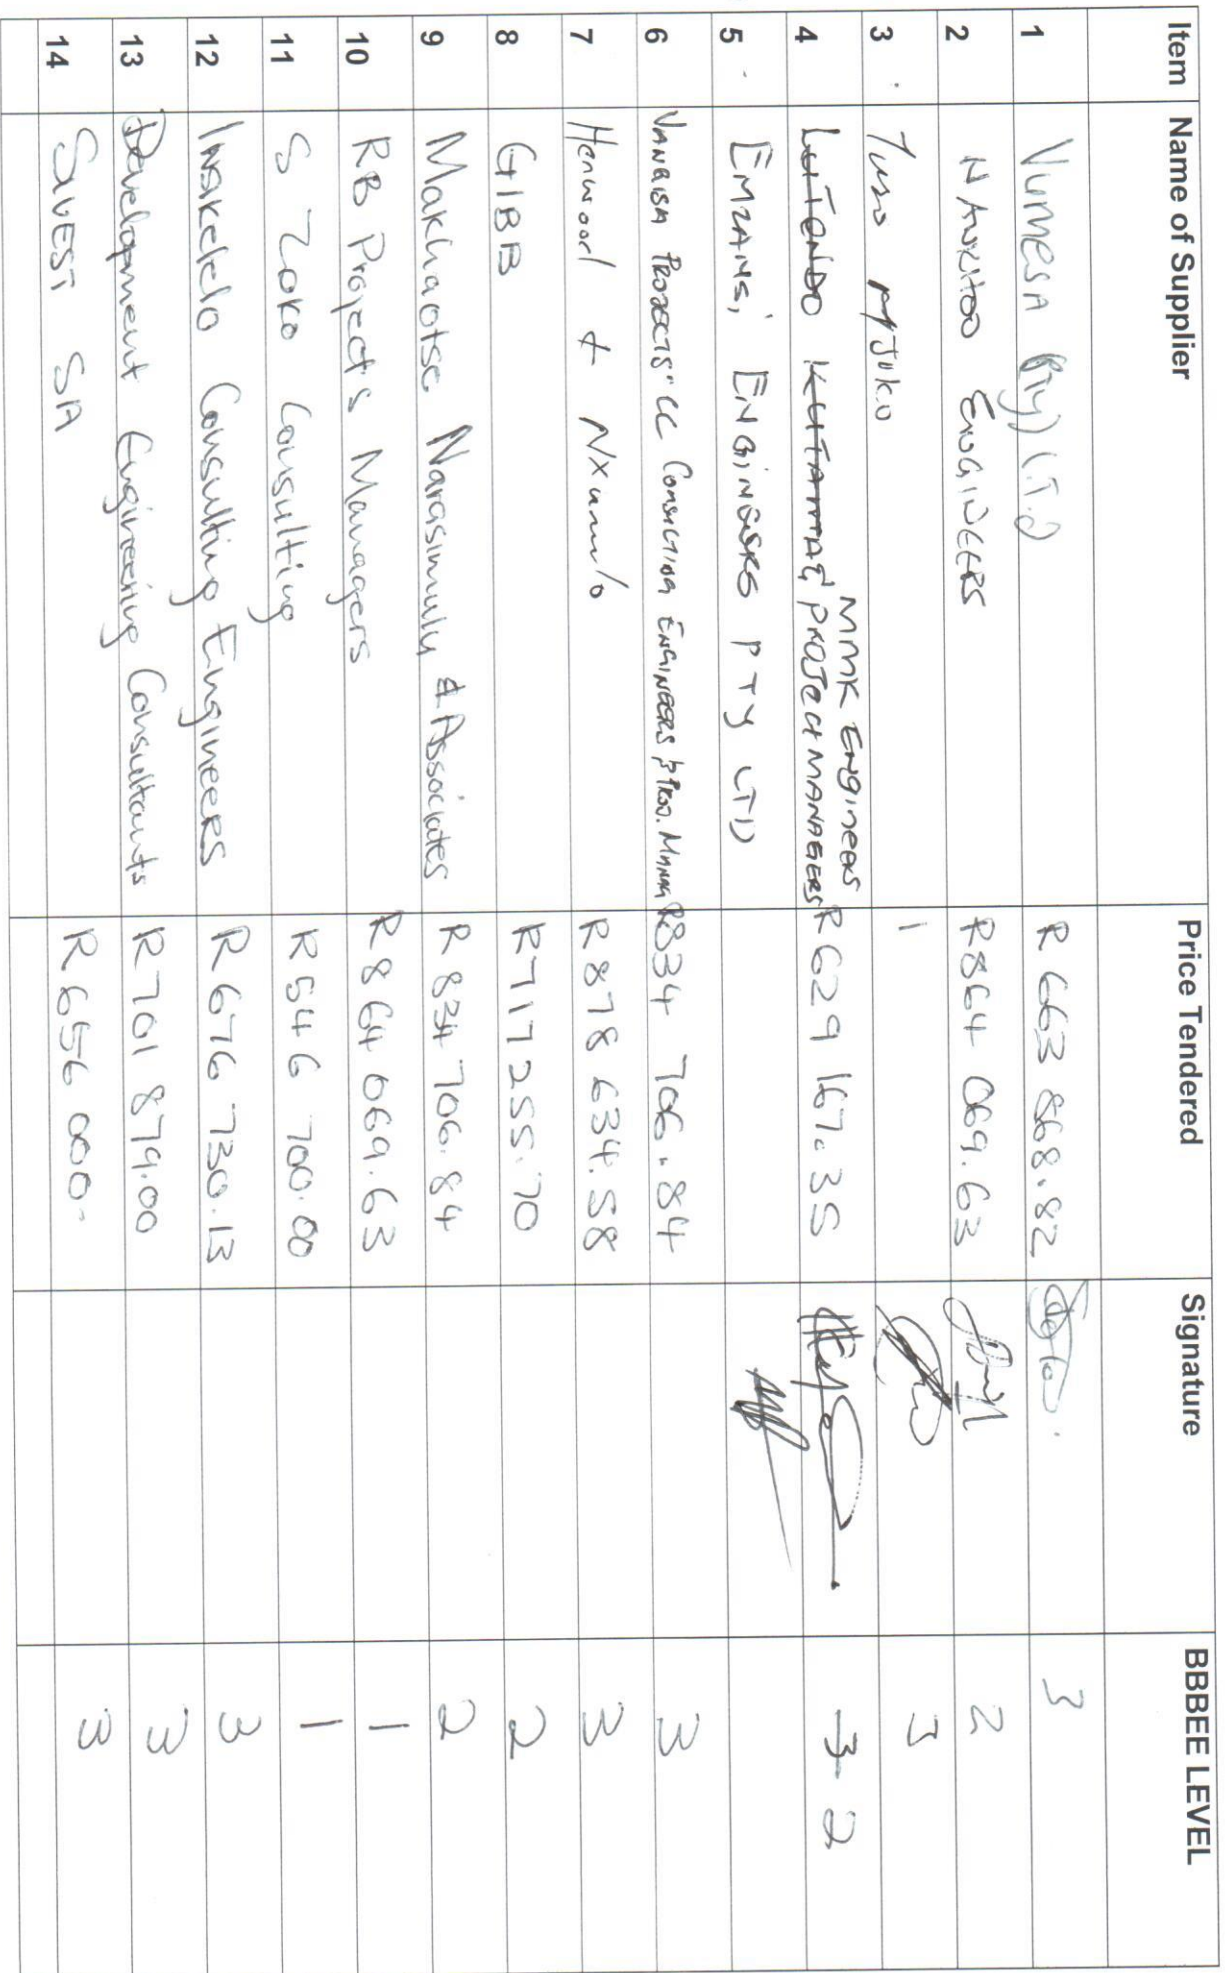 Item Name of Supplier Price Tendered Signature BBBEE LEVEL
1 Vumesa (Pty) LTD R 663 868.82 3
2 ENGINEERS R864 069.63 2
3 3
MMK Engineers
4 PROJECT MANAGERS R 629 167.35 3 2
5 EMZANSI ENGINEERS PTY LTD
6 VANGISA PROJECTS CC ENGINEERS R834 706.84 3
7 Henwood + Nxumalo R 878 634.58 3
8 GIBB R717 255.70 2
9 Makhaotse Narasimulu & Associates R 834 706.84 2
10 RB Projects Managers R 864 069.63 1
11 S ZOKO Consulting R 546 700.00 1
12 Consulting Engineers R 676 730.13 3
13 Development Engineering Consultants R 701 879.00 3
14 SUVEST SA R 656 000- 3